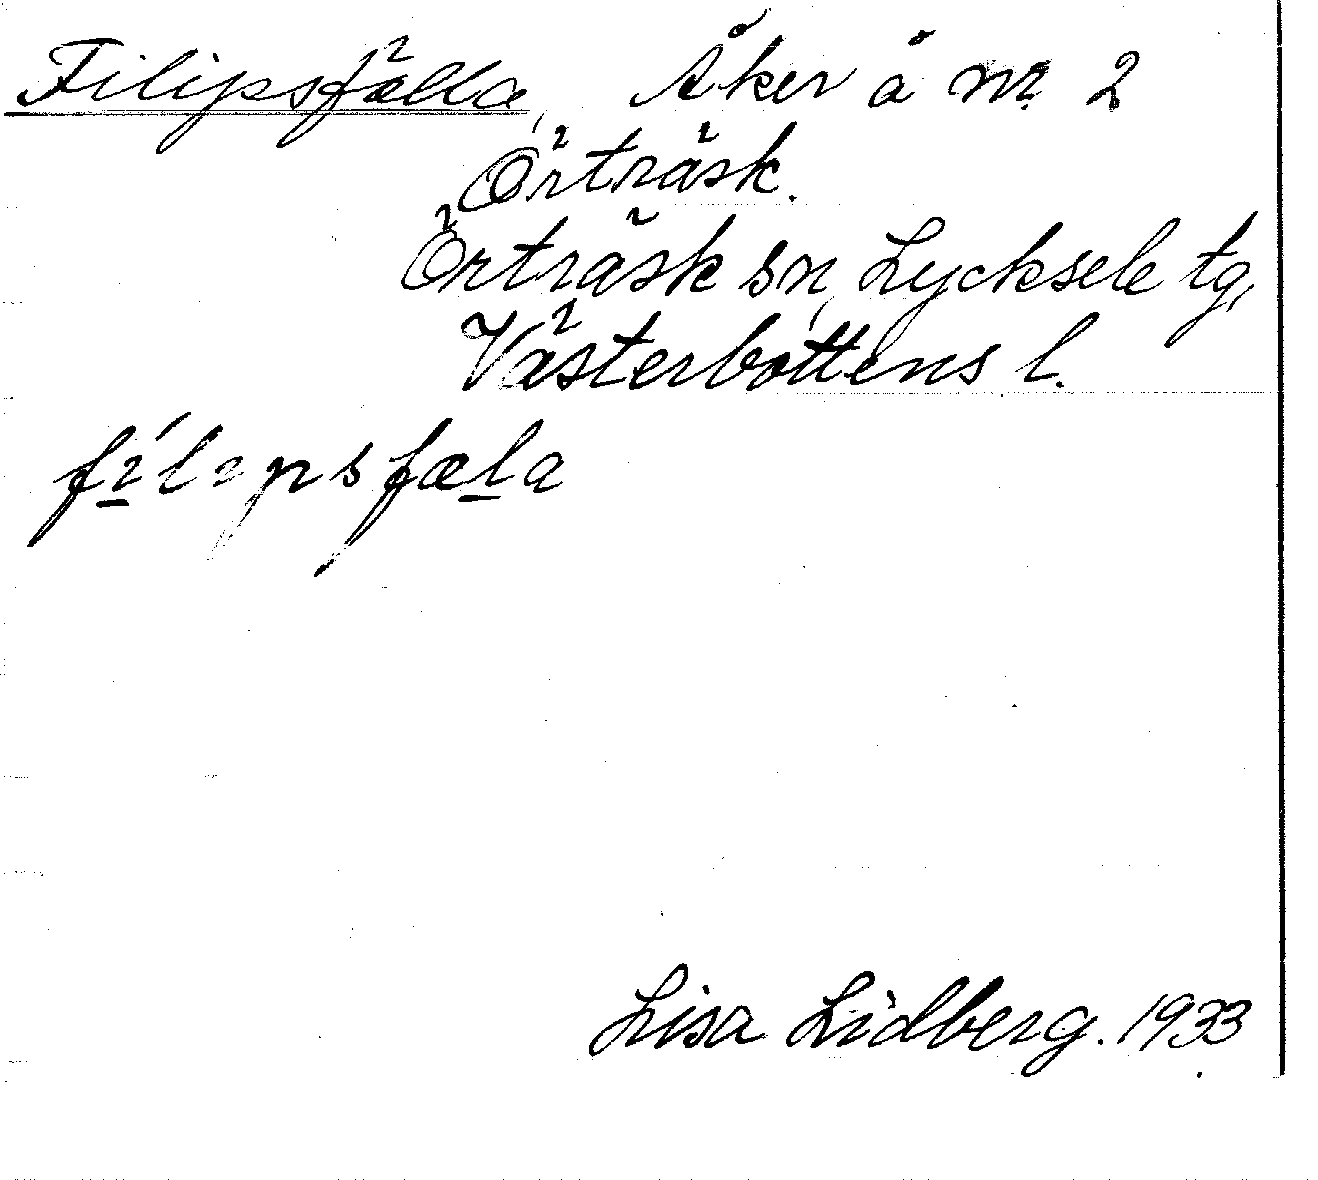 Filipsfälla, Åker å nr 2
Örträsk.
Örträsk sn, Lycksele tg,
Västerbottens l.
fílıpsfæla
Lisa Lidberg. 1933